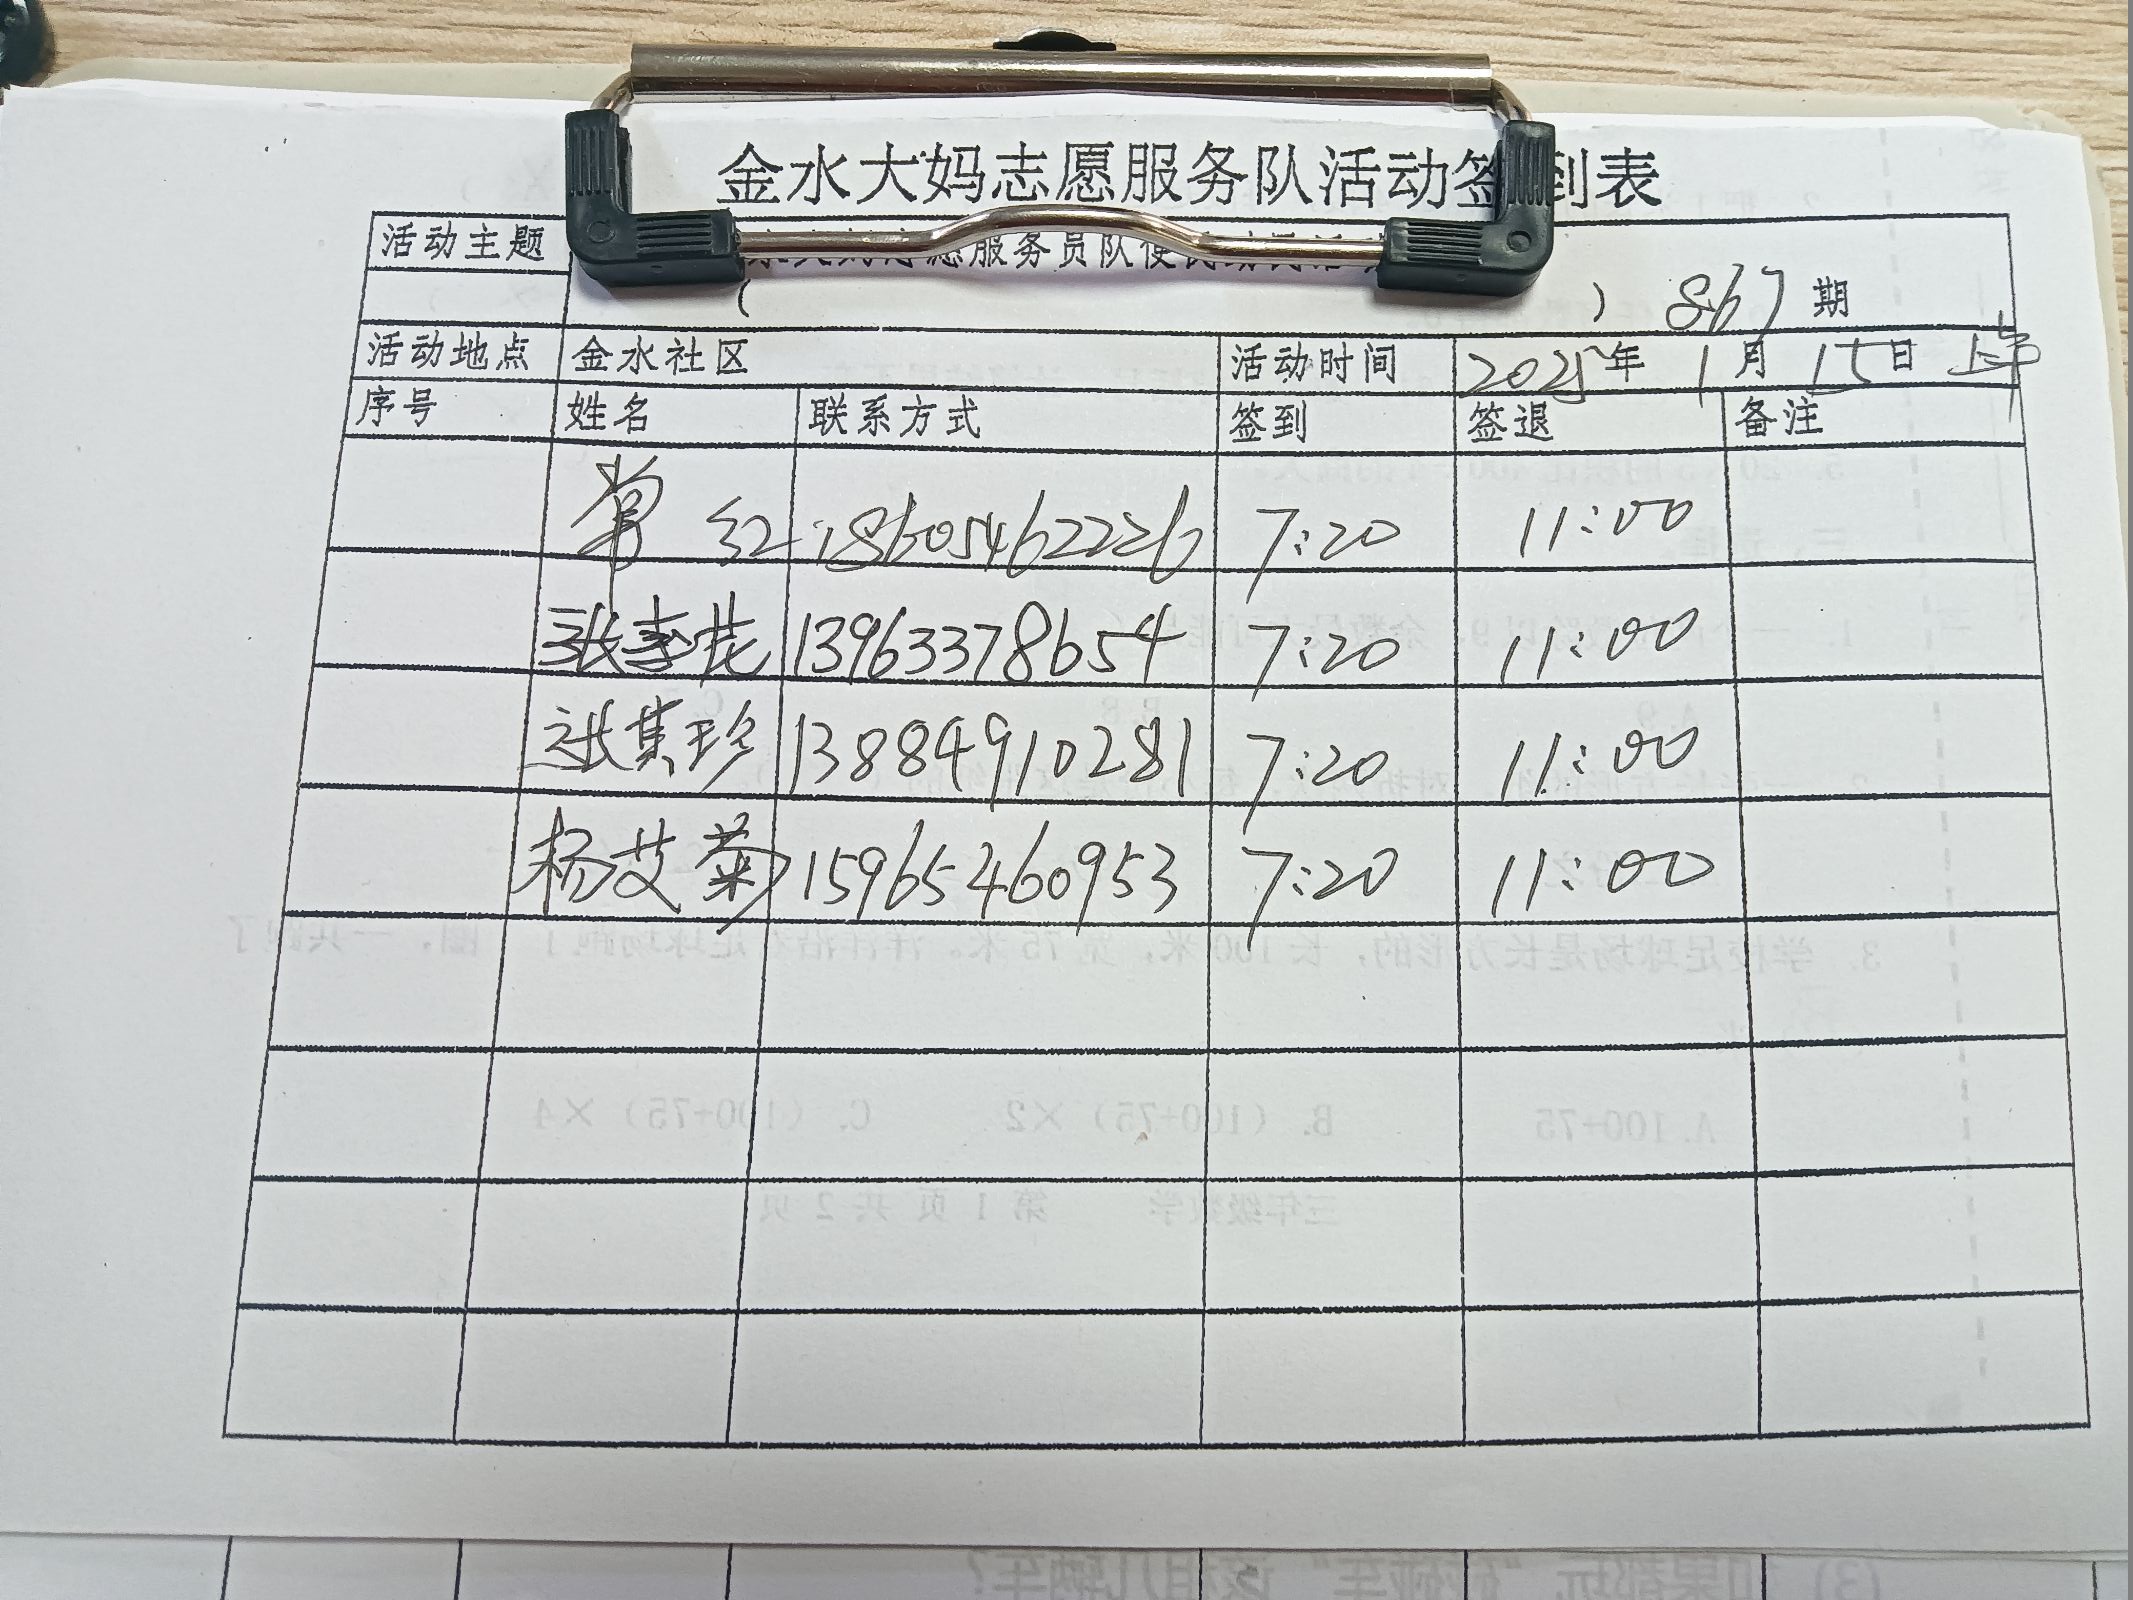 金水大妈志愿服务队活动签到表
活动主题 服务员队便民
( ) 867 期
活动地点 金水社区 活动时间 2025年 1月 15日 上午
序号 姓名 联系方式 签到 签退 备注
红 18605462226 7:20 11:00
张 花 13963378654 7:20 11:00
张其珍 13884910281 7:20 11:00
杨艾菊 15965460953 7:20 11:00